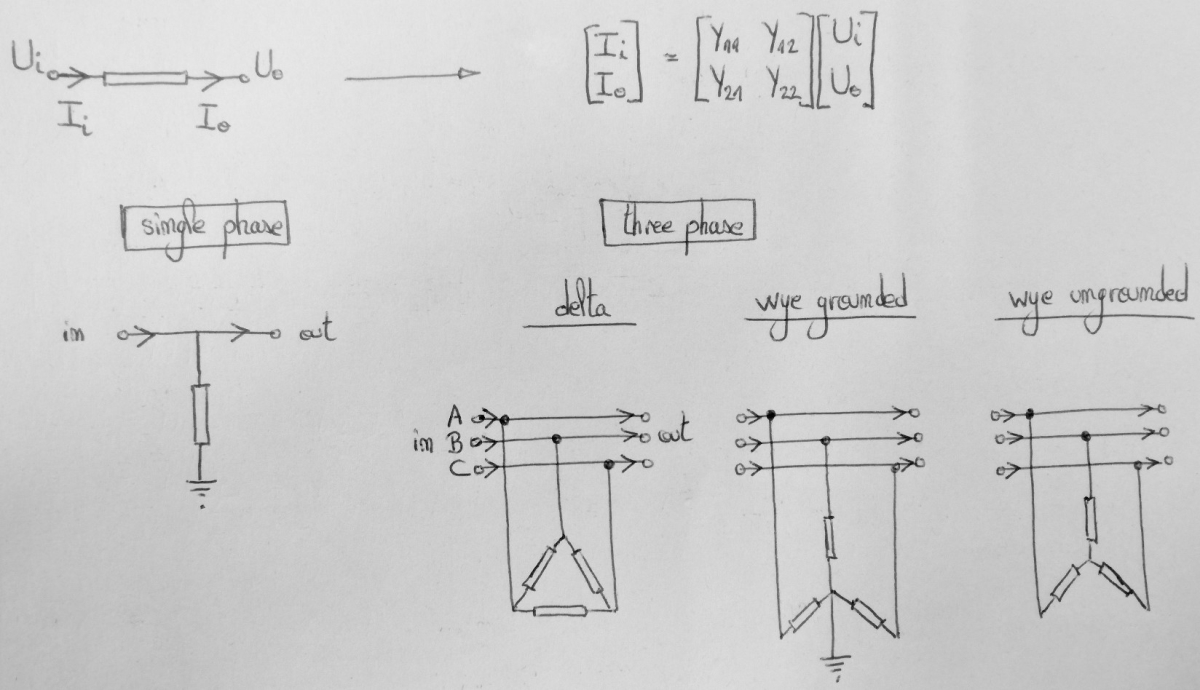 Ui Uo
Ii Io
[Ii Io] = [Y11 Y12 Y21 Y22] [Ui Uo]
single phase
three phase
delta
wye grounded
wye ungrounded
in out
A
in B out
C